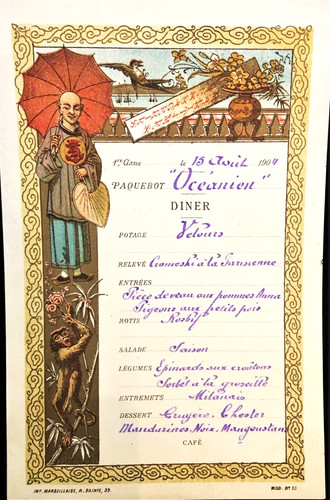 1re Classe le 15 Août 1904
PAQUEBOT "Océanien"
DINER
POTAGE Velours
RELEVÉ Cromeski à la Parisienne
ENTRÉES
Pièce de veau aux pommes Anna
Pigeons aux petits pois
ROTIS Rosbif
SALADE Saison
LÉGUMES Epinards aux croûtons
Sorbet à la groseille
ENTREMETS Milanais
DESSERT Gruyère. Chester
Mandarines. Noix. Mangoustan
CAFÉ
IMP. MARSEILLAISE, R. SAINTE, 39.
MOD. No